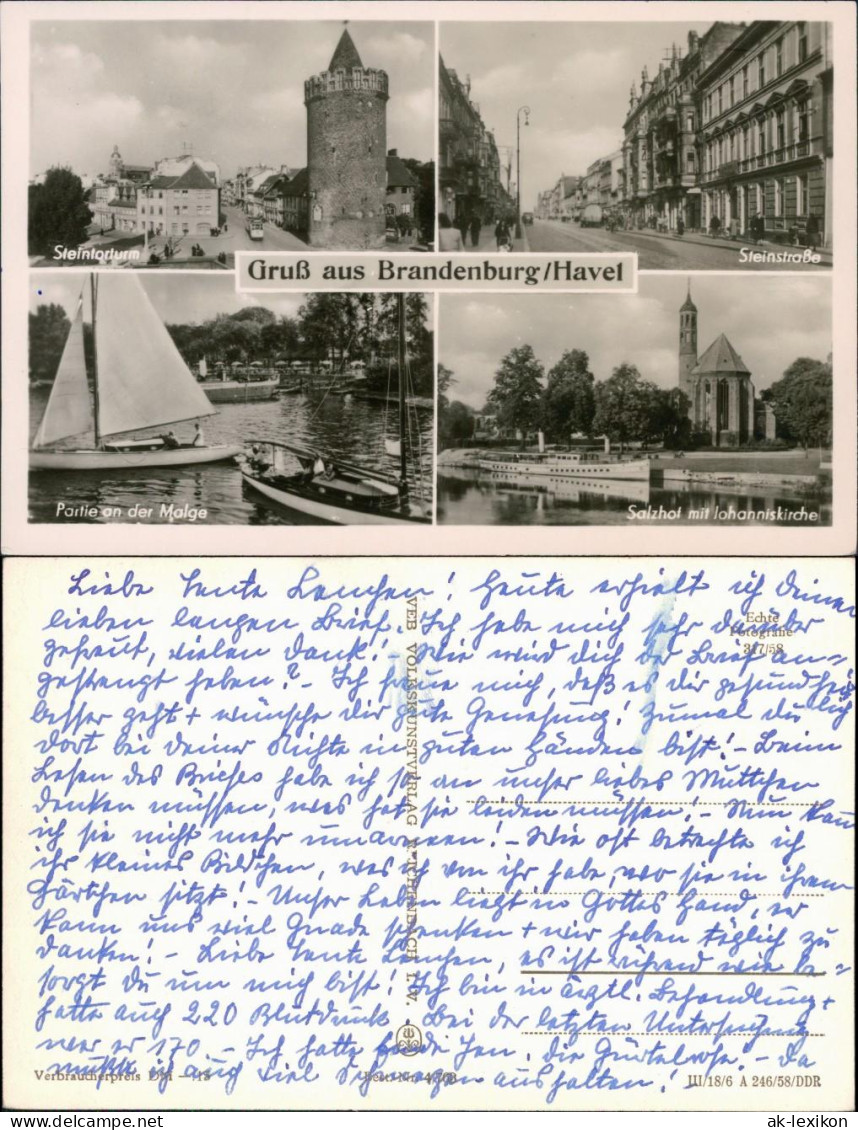 Steintorturm
Steinstraße
Gruß aus Brandenburg/Havel
Partie an der Malge
Salzhof mit Johanniskirche
Liebe Tante Lenchen! Heute erhielt ich Deinen
lieben langen Brief. Ich habe mich sehr darüber
gefreut, vielen Dank! Wie wird dich der Brief an=
gestrengt haben? – Ich freue mich, daß es dir gesundheitlich
besser geht + wünsche dir gute Genesung! Zumal du
dort bei deiner Nichte in guten Händen bist! – Beim
Lesen des Briefes habe ich so an unser liebes Muttchen
denken müssen, was hat sie leiden müssen! – Nun kann
ich sie nicht mehr umarmen! – Wie oft betrachte ich
ihr kleines Bildchen, was ich von ihr habe, wo sie in ihrem
Gärtchen sitzt! – Unser Leben liegt in Gottes Hand, er
kann uns viel Gnade schenken + wir haben täglich zu
danken! – Liebe Tante Lenchen, es ist rührend wie be=
sorgt du um mich bist! Ich bin in ärztl. Behandlung +
hatte auch 220 Blutdruck. Bei der letzten Untersuchung
war er 170. – Ich hatte die Gürtelrose! – Da
mußte ich auch viel Schmerzen aushalten!
Echte
Fotografie
317/58
VEB VOLKSKUNSTVERLAG REICHENBACH I. V.
Verbraucherpreis DM –.15
Best.-Nr.
III/18/6 A 246/58/DDR
ak-lexikon.de